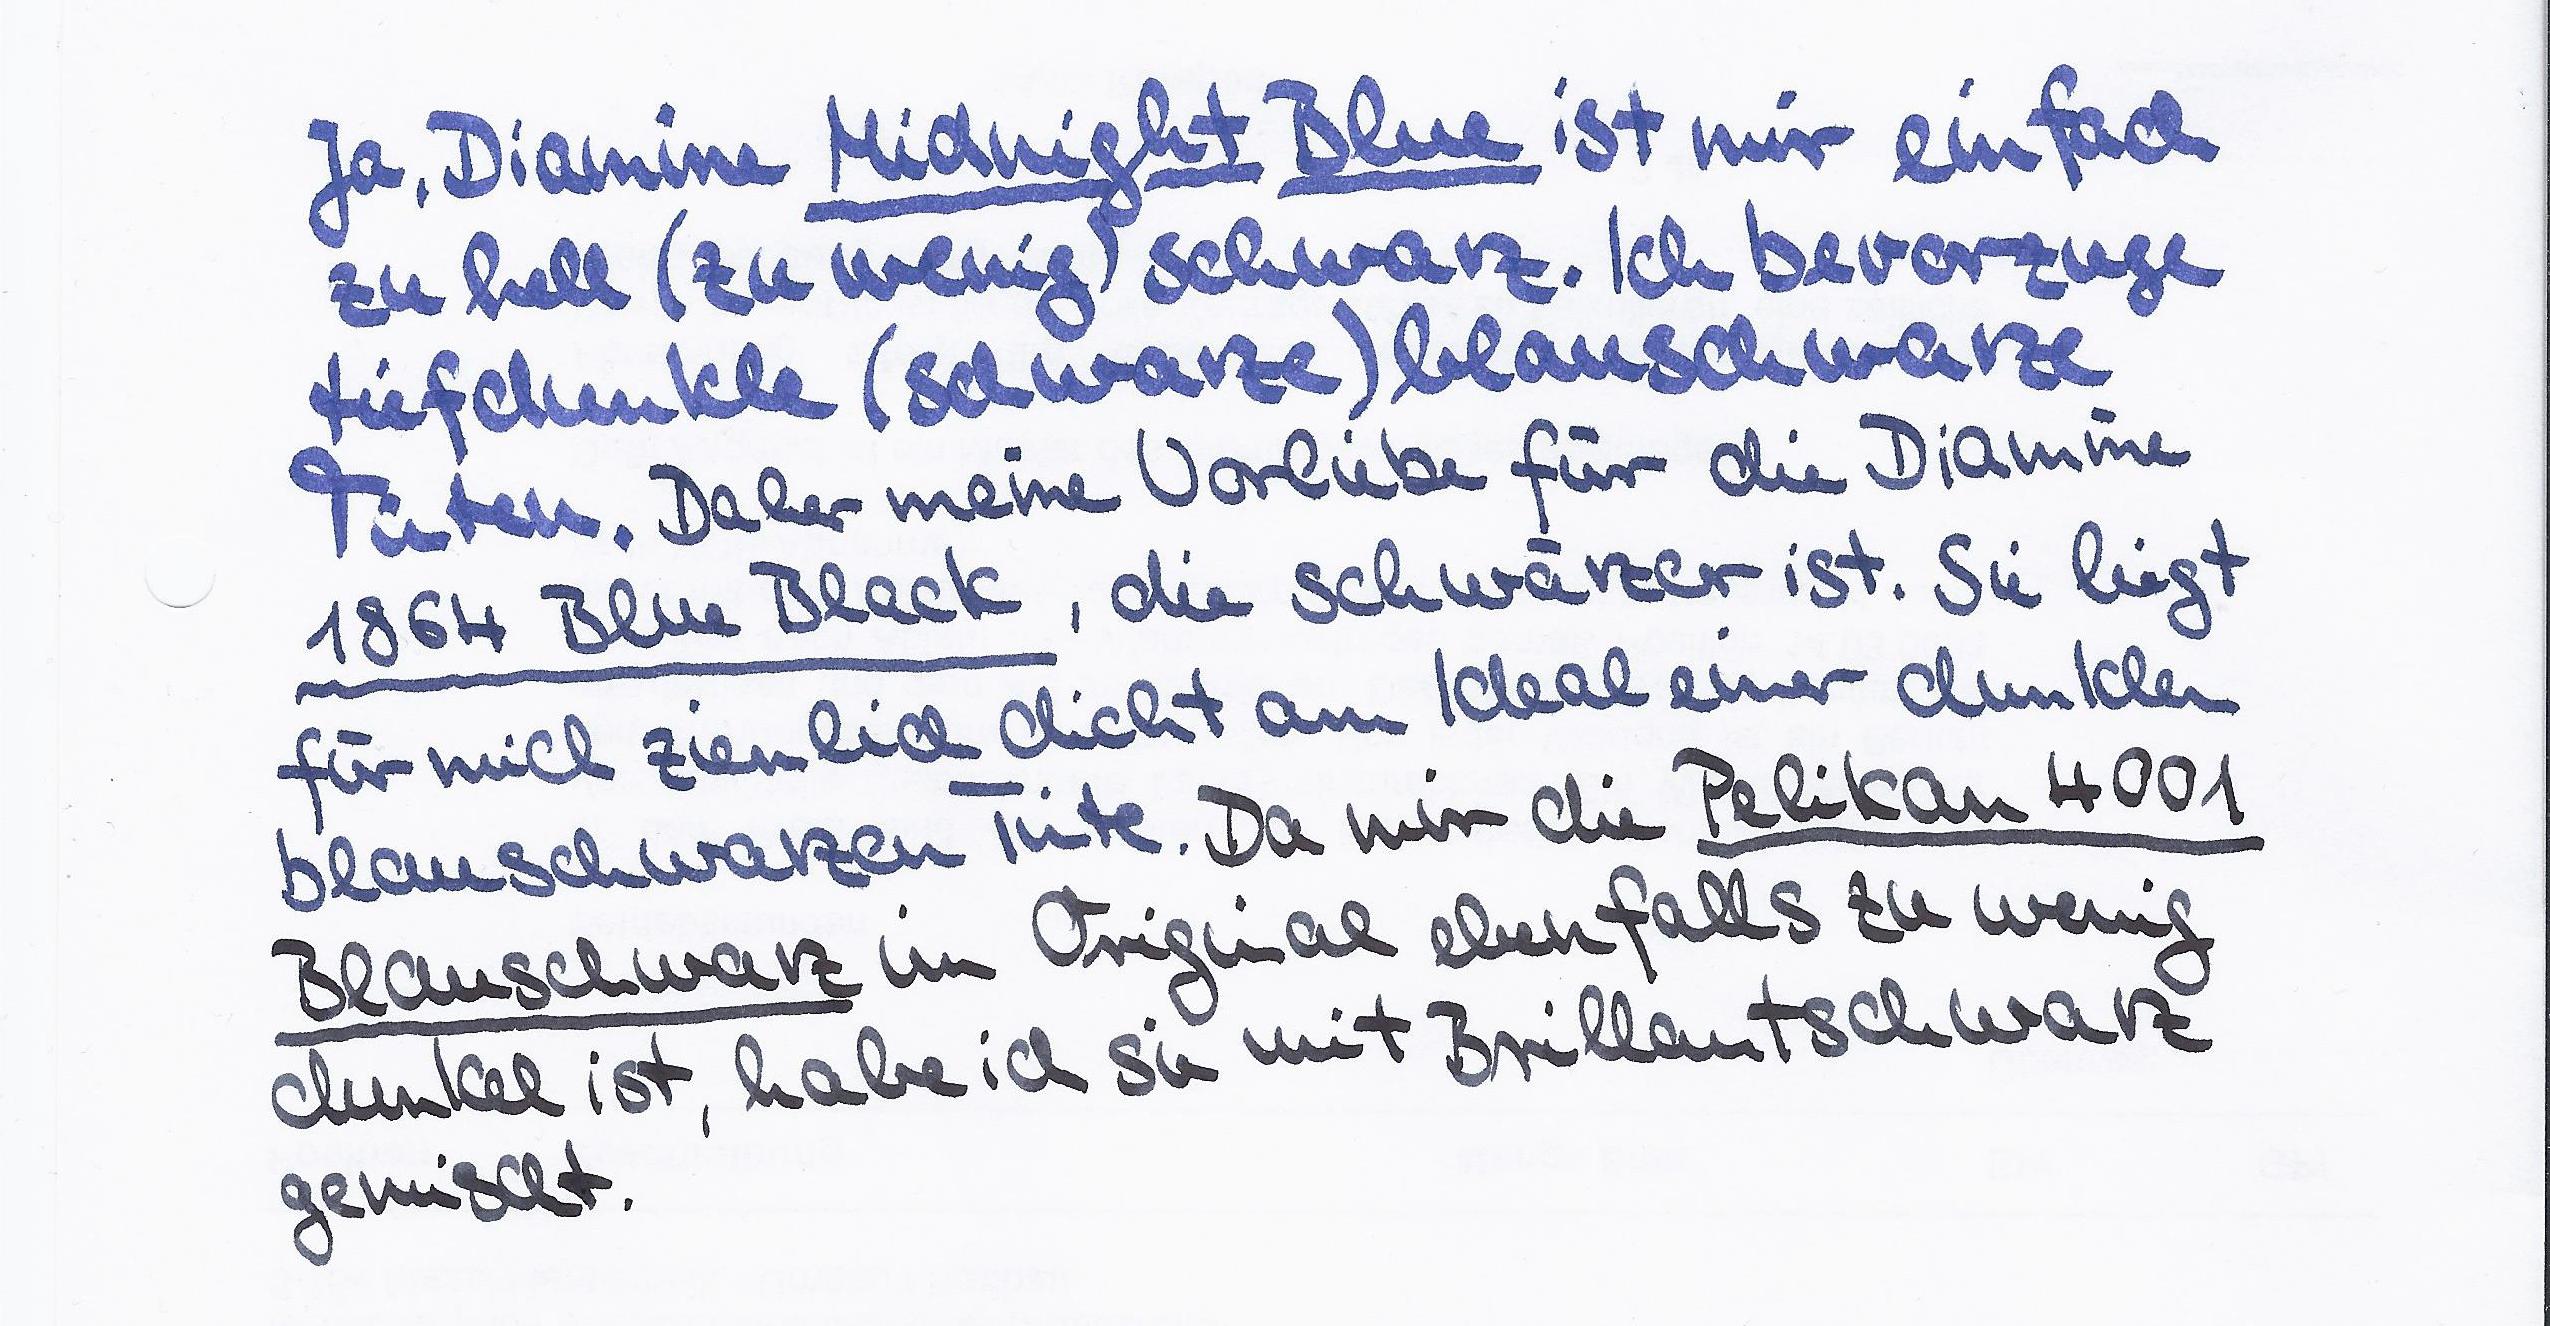 Ja, Diamine Midnight Blue ist mir einfach
zu hell (zu wenig) schwarz. Ich bevorzuge
tiefdunkle (schwarze) blauschwarze
Tinten. Daher meine Vorliebe für die Diamine
1864 Blue Black, die schwärzer ist. Sie liegt
für mich ziemlich dicht am Ideal einer dunklen
blauschwarzen Tinte. Da mir die Pelikan 4001
Blauschwarz im Original ebenfalls zu wenig
dunkel ist, habe ich sie mit Brillantschwarz
gemischt.